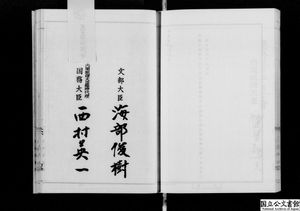 文部大臣
海部俊樹
内閣総理大臣臨時代理
国務大臣
西村英一
国立公文書館
National Archives of Japan